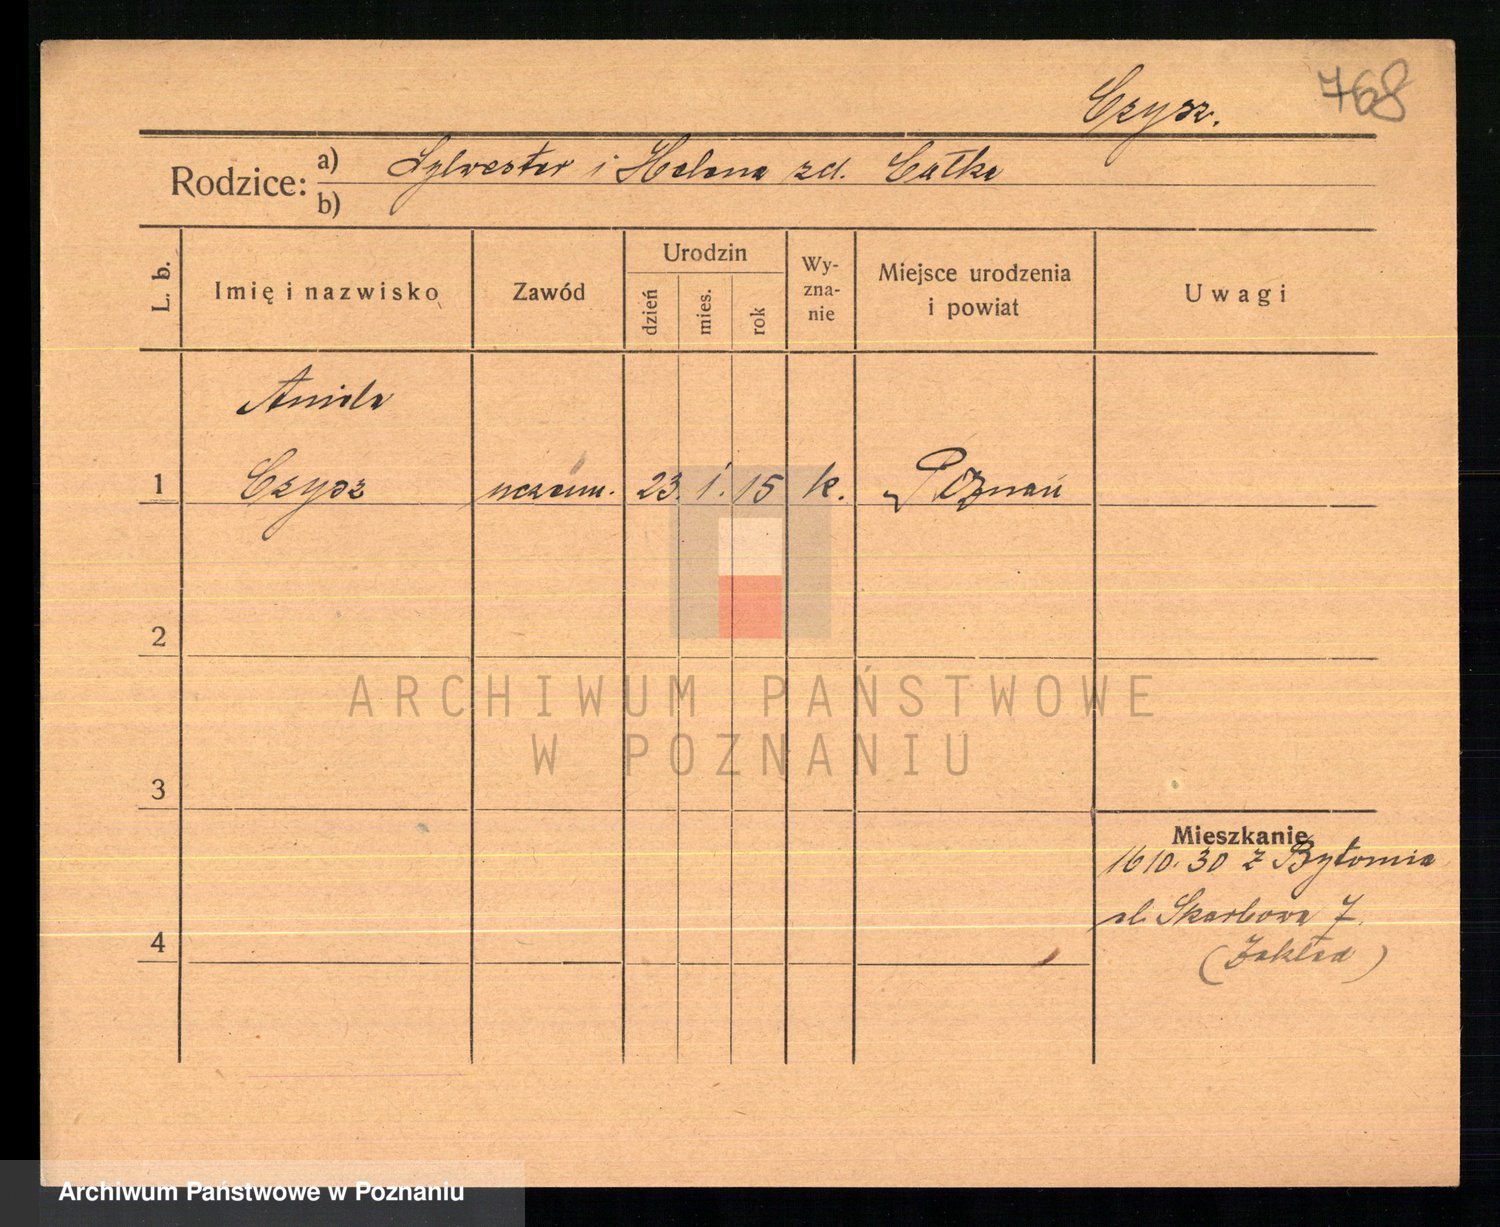 768
Czysz.
Rodzice: a) Sylwester i Helena zd. Całka
b)
L. b. Imię i nazwisko Zawód Urodzin dzień mies. rok Wy-zna-nie Miejsce urodzenia i powiat Uwagi
Aniela
1 Czysz uczenn. 23. 1. 15 k. Poznań
2
ARCHIWUM PAŃSTWOWE
W POZNANIU
3
Mieszkanie
16 10. 30 z Bytomia
ul. Skarbowa 7.
4
(Zakład)
Archiwum Państwowe w Poznaniu